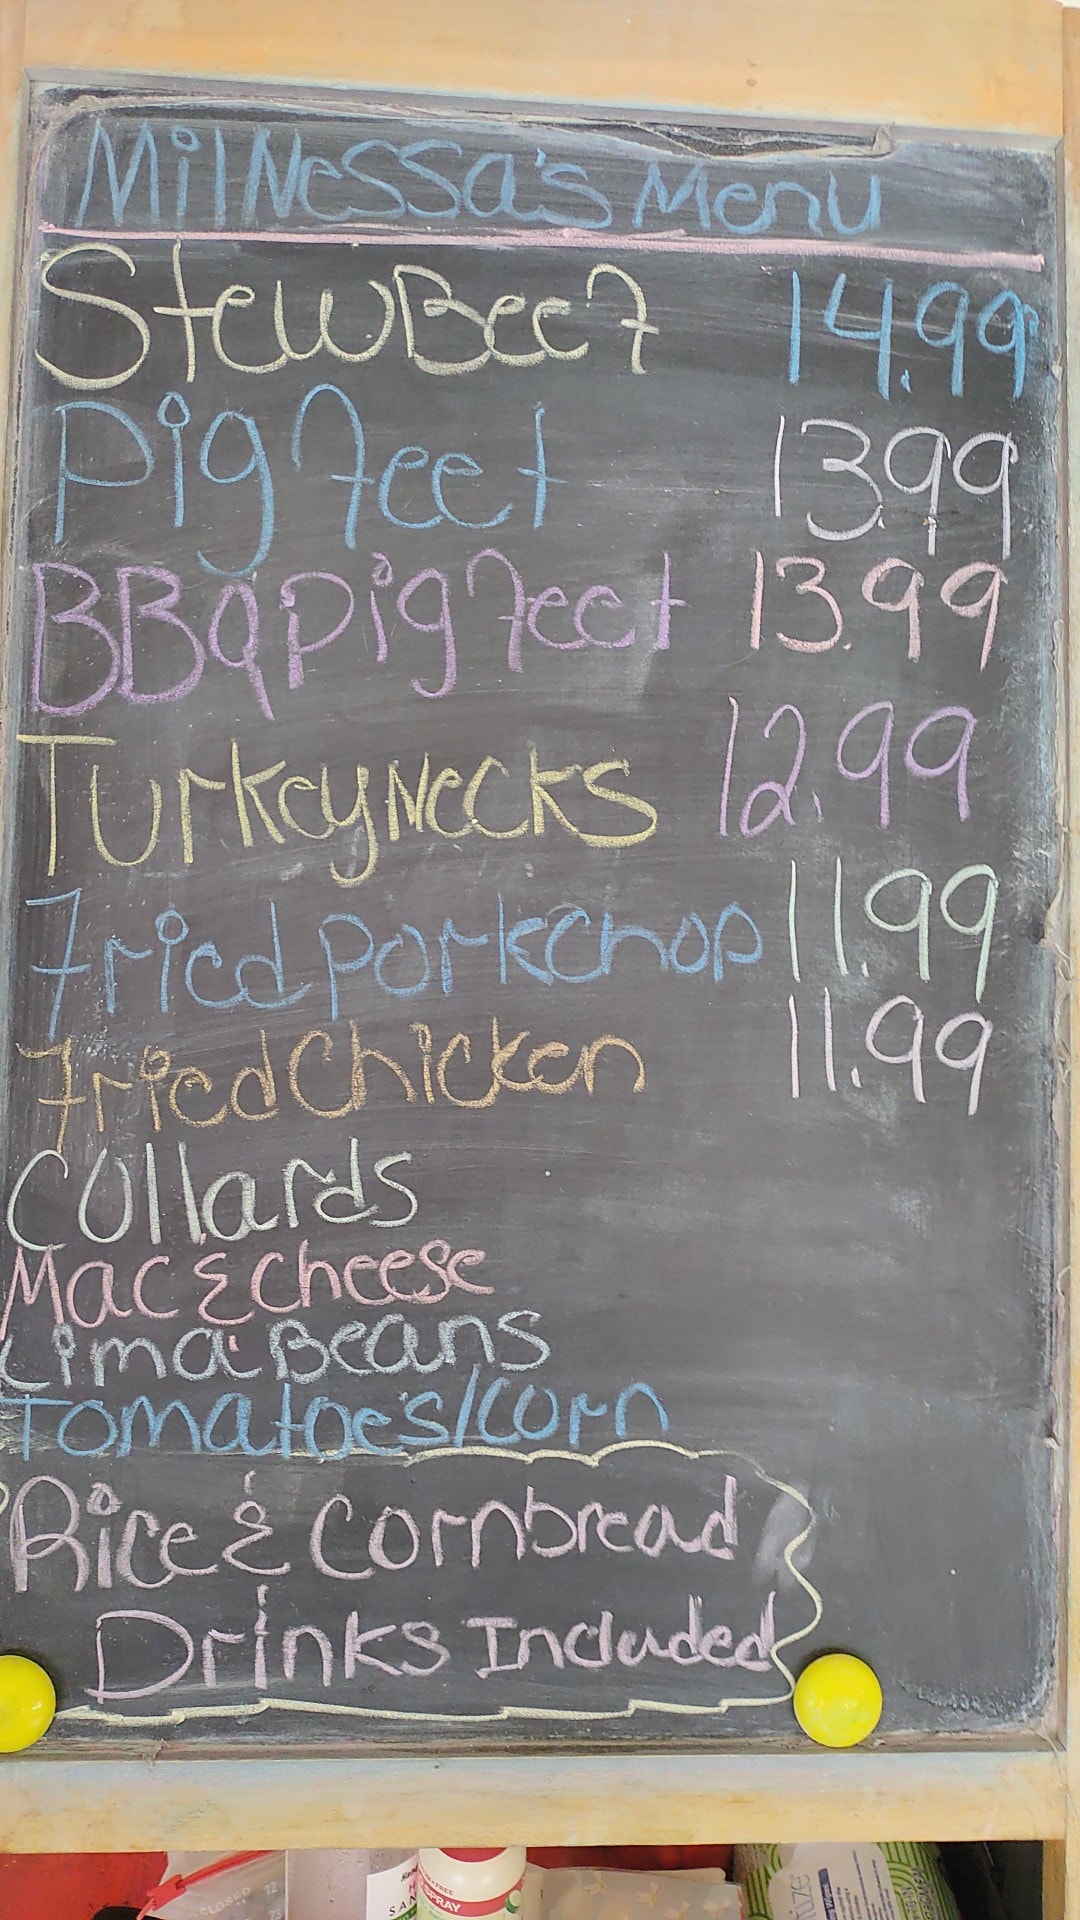 MilNessa's Menu
Stew Beef 14.99
Pig feet 13.99
BBq pig feet 13.99
Turkey Necks 12.99
Fried porkchop 11.99
Fried Chicken 11.99
Collards
Mac & cheese
Lima Beans
Tomatoes/corn
Rice & cornbread
& Drinks Included
CLOSED 12
SAN
SPRAY